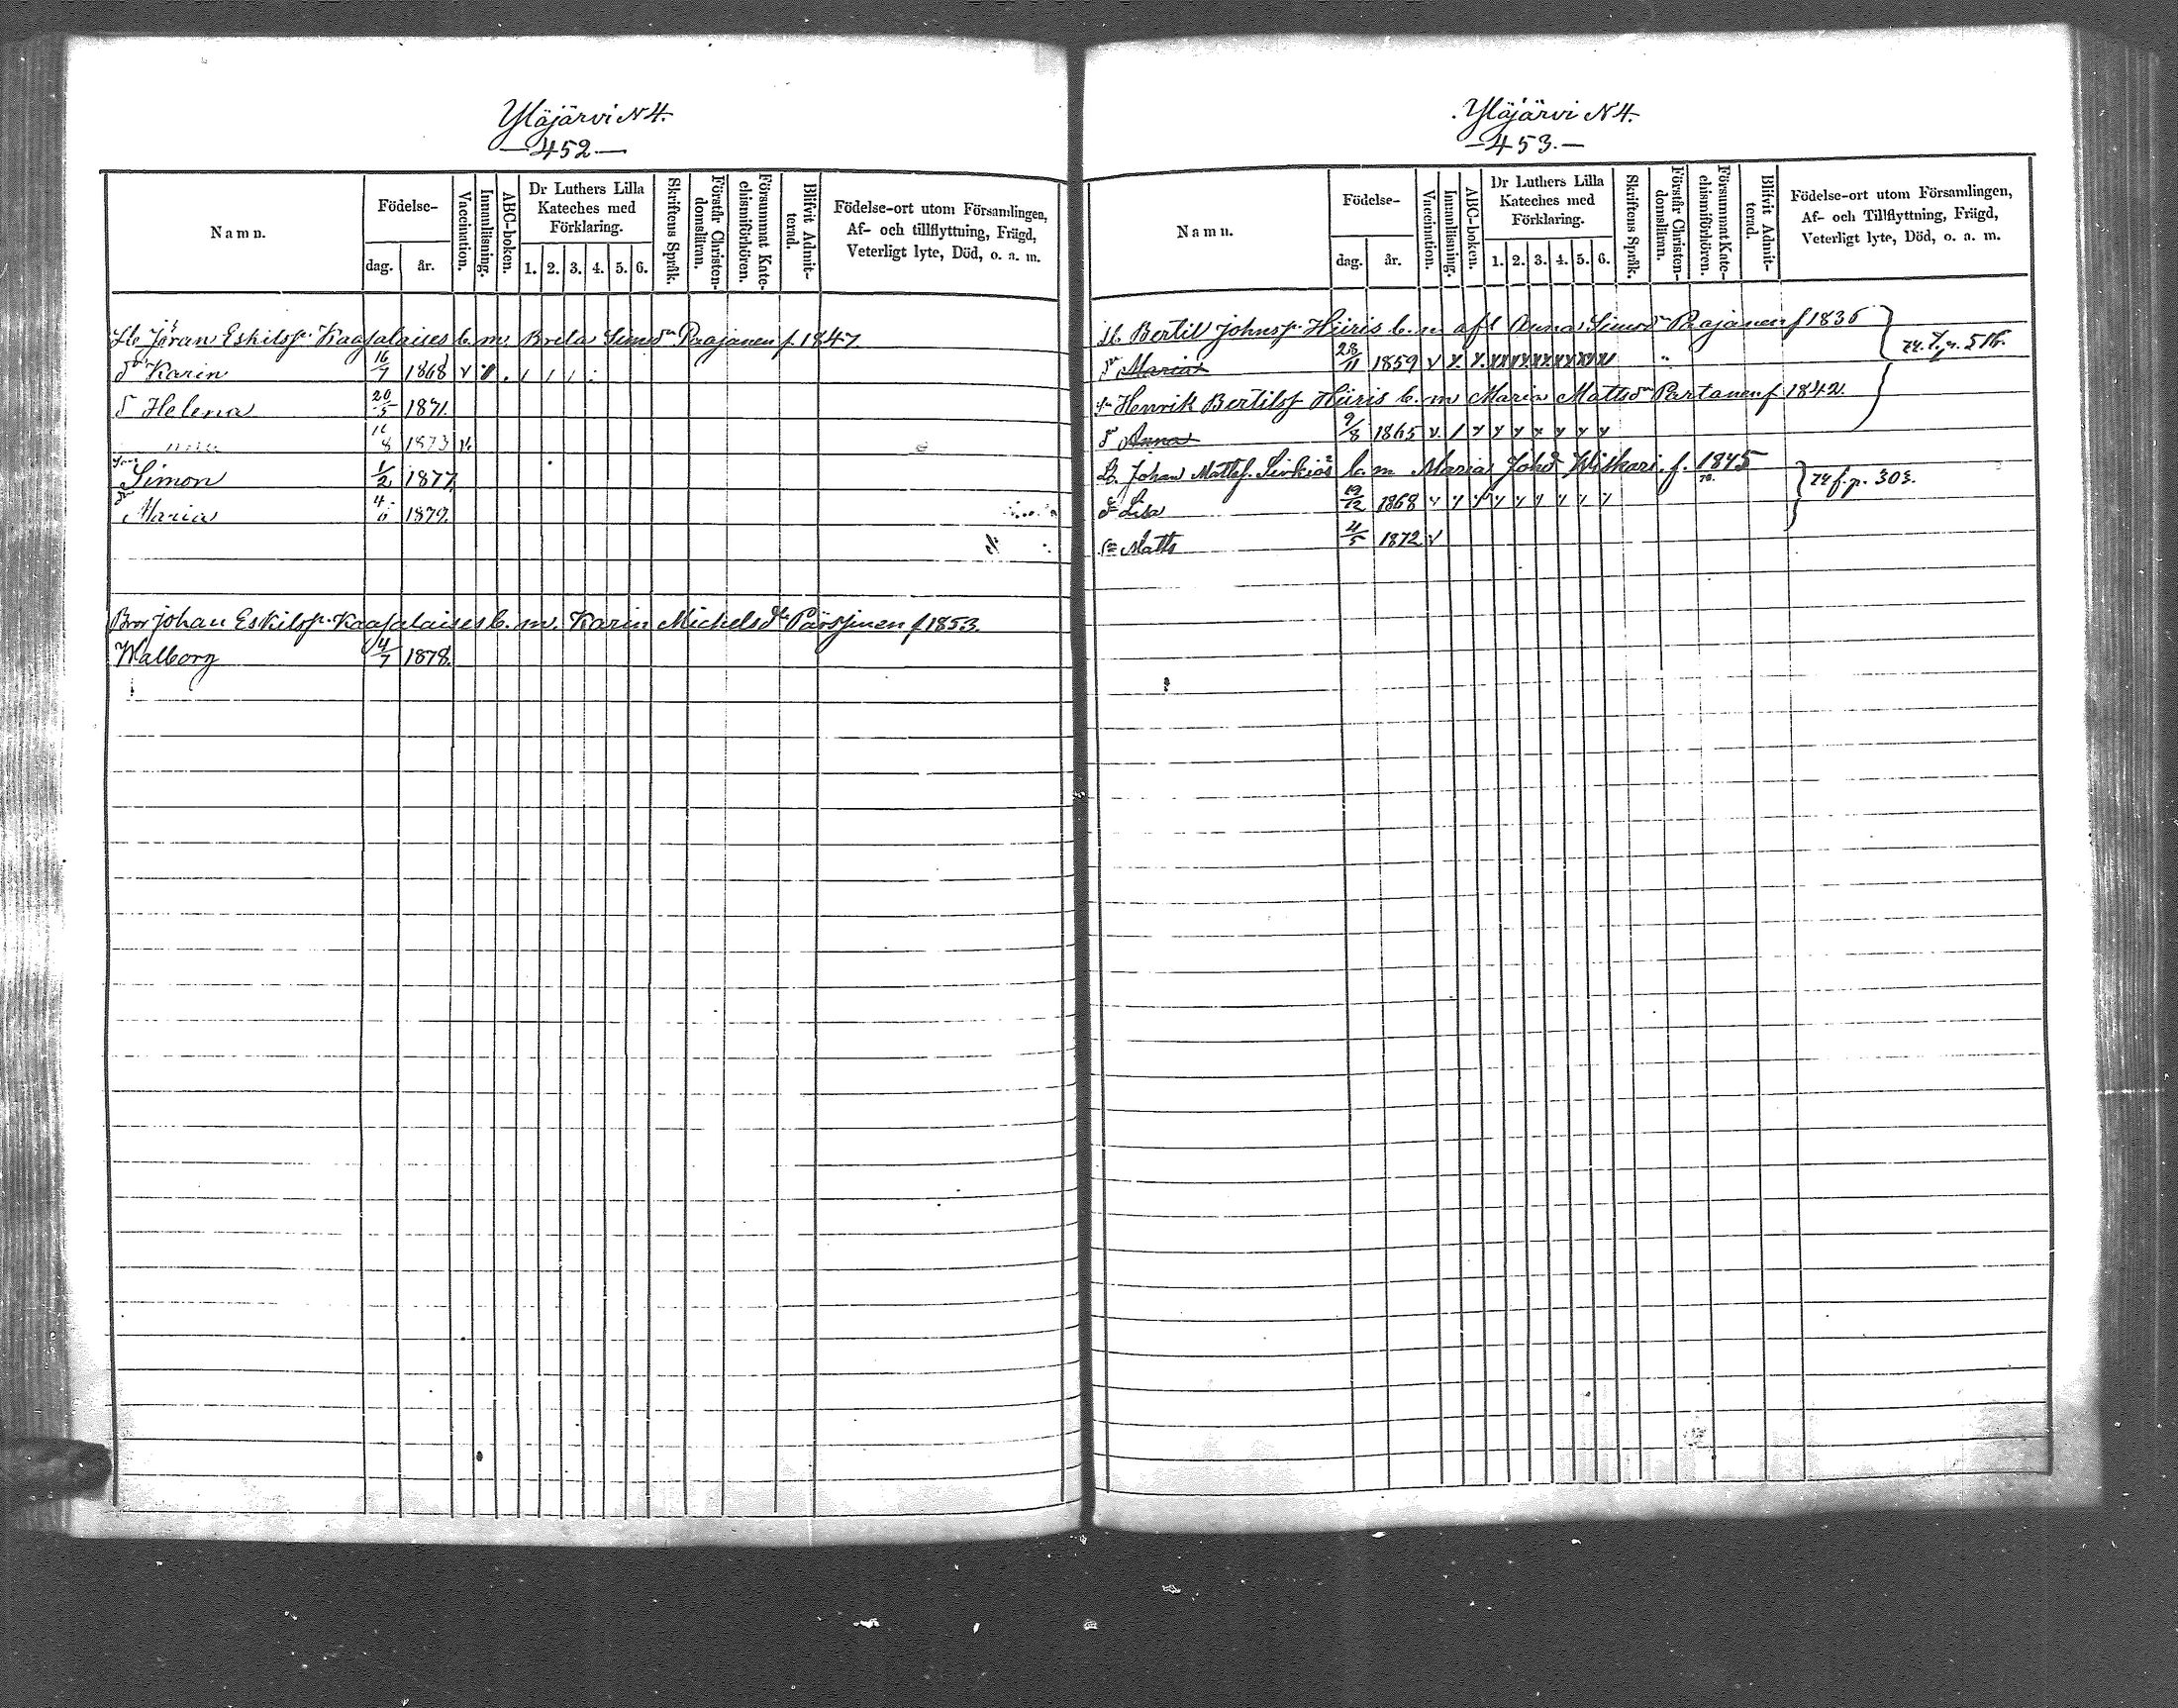 Yläjärvi N 4.
— 452 —
Namn.
Födelse-
dag. år.
Vaccination.
Innanläsning.
ABC-boken.
Dr Luthers Lilla Kateches med Förklaring.
1. 2. 3. 4. 5. 6.
Skriftens Språk.
Förstår Christendomsläran.
Försummat Katechismiförhören.
Blifvit Admitterad.
Födelse-ort utom Församlingen,
Af- och tillflyttning, Frägd,
Veterligt lyte, Död, o. a. m.
Jöran Eskilss. Kaajalaises b. m. Breta Simsdr Paajanen f. 1847.
dr Karin 16/7 1868
d Helena 20/5 1871.
1873
Simon 1/2 1877.
dr Maria 4/6 1879.
Bror Johan Eskilss. Kaajalaises b. m. Karin Michelsdr Pärssinen f 1853.
Walborg 4/7 1878.
Yläjärvi N 4.
— 453. —
Namn.
Födelse-
dag. år.
Vaccination.
Innanläsning.
ABC-boken.
Dr Luthers Lilla Kateches med Förklaring.
1. 2. 3. 4. 5. 6.
Skriftens Språk.
Förstår Christendomsläran.
Försummat Katechismiförhören.
Blifvit Admitterad.
Födelse-ort utom Församlingen,
Af- och Tillflyttning, Frägd,
Veterligt lyte, Död, o. a. m.
Bertil Johnss. Hüris b. m afl Anna Simsdr Paajanen f 1836
d Maria 28/11 1859
Henrik Bertilss Hüris b. m Maria Mattsdr Partanen f 1842.
d Anna 9/8 1865
Johan Mattss. b. m Maria Johd Wiskari f. 1845
f. p. 303.
d Lisa 19/12 1868
Matts 4/5 1872